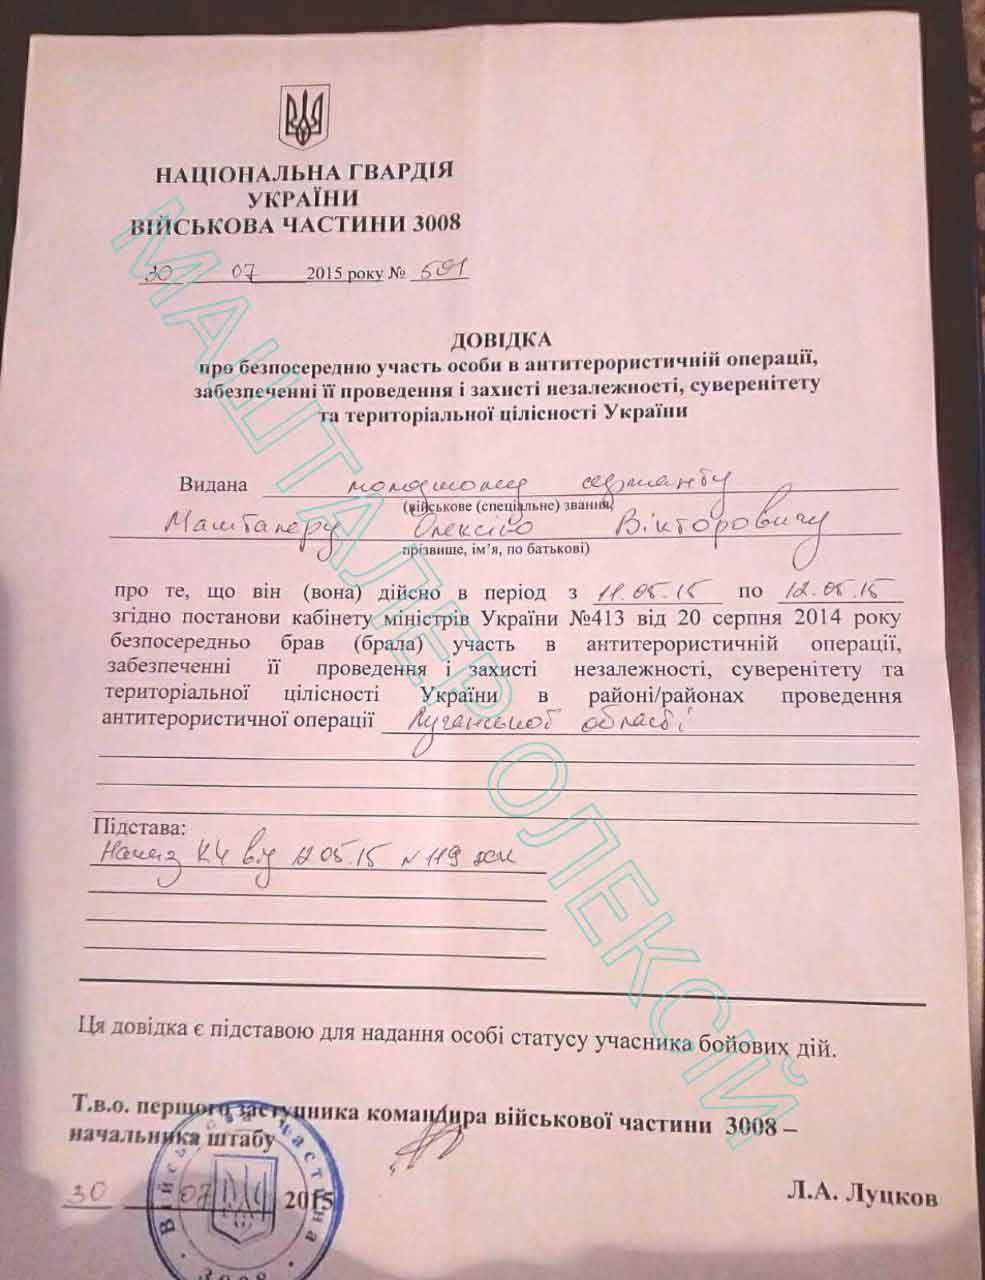 НАЦІОНАЛЬНА ГВАРДІЯ
УКРАЇНИ
ВІЙСЬКОВА ЧАСТИНИ 3008
30 07 2015 року № 501
ДОВІДКА
про безпосередню участь особи в антитерористичній операції,
забезпеченні її проведення і захисті незалежності, суверенітету
та територіальної цілісності України
Видана молодшому сержанту
(військове (спеціальне) звання,
Машталеру Олексію Вікторовичу
прізвище, ім’я, по батькові)
про те, що він (вона) дійсно в період з 11.05.15 по 12.05.15
згідно постанови кабінету міністрів України №413 від 20 серпня 2014 року
безпосередньо брав (брала) участь в антитерористичній операції,
забезпеченні її проведення і захисті незалежності, суверенітету та
територіальної цілісності України в районі/районах проведення
антитерористичної операції Луганської області
Підстава:
Наказ КЧ від 12.05.15 № 119
Ця довідка є підставою для надання особі статусу учасника бойових дій.
Т.в.о. першого заступника командира військової частини 3008 –
начальника штабу
30 07 2015
Л.А. Луцков
Військова частина
3008
МАШТАЛЕР ОЛЕКСІЙ